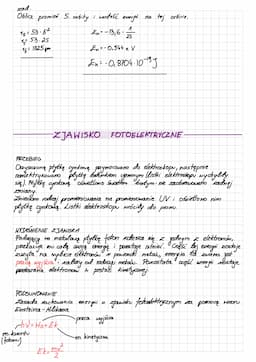 zad.
Oblicz promień 5. orbity i wartość energii na tej orbicie.
r₅ = 53 · 5²
r₅ = 53 · 25
r₅ = 1325 pm
E₅ = -13,6 · 1/25
E₅ = -0,544 eV
E₅ = -0,8704 · 10⁻¹⁹ J
ZJAWISKO FOTOELEKTRYCZNE
PRZEBIEG
Oczyszczoną płytkę cynkową przymocowano do elektroskopu, następnie
naelektryzowano płytkę ładunkiem ujemnym (listki elektroskopu wychyliły
się). Płytkę cynkową oświetlono światłem białym - nie zaobserwowano żadnej
zmiany.
Zmieniono rodzaj promieniowania na promieniowanie UV i oświetlono nim
płytkę cynkową. Listki elektroskopu wróciły do pionu.
WYJAŚNIENIE ZJAWISKA
Padający na metalową płytkę foton zderza się z jednym z elektronów,
przekazuje mu całą swoją energię i przestaje istnieć. Część tej energii zostaje
zużyta na wybicie elektronu z powierzchni metalu, energia ta zwana jest
pracą wyjścia i zależy od rodzaju metalu. Pozostała część energii
elektronów w postaci kinetycznej.
PODSUMOWANIE
Zasada zachowania energii w zjawisku fotoelektrycznym za pomocą wzoru
Einsteina-Millikana
hν = W₀ + Ek
praca wyjścia
en. kwantu
(fotonu)
en. kinetyczna
Ek = mv²/2